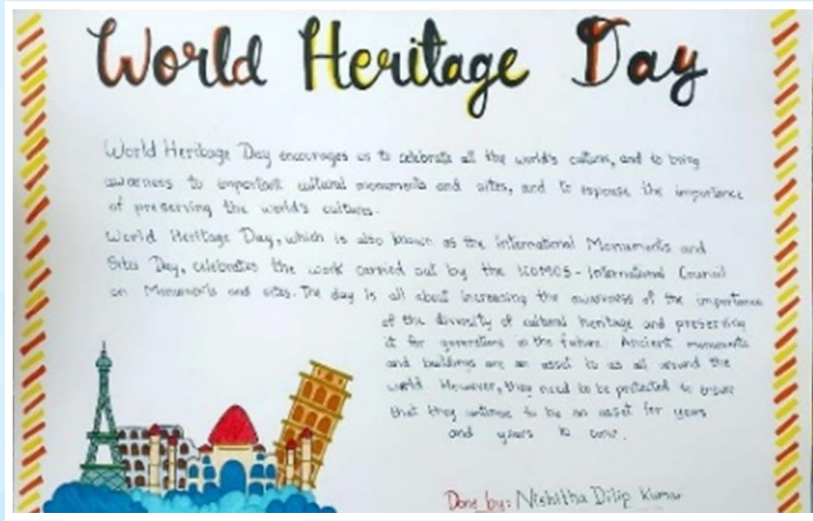 World Heritage Day
World Heritage Day encourages us to celebrate all the world's cultures, and to bring
awareness to important cultural monuments and sites, and to espouse the importance
of preserving the world's cultures.
World Heritage Day, which is also known as the International Monuments and
Sites Day, celebrates the work carried out by the ICOMOS - International Council
on Monuments and sites. The day is all about increasing the awareness of the importance
of the diversity of cultural heritage and preserving
it for generations in the future. Ancient monuments
and buildings are an asset to us all around the
world. However, they need to be protected to ensure
that they continue to be an asset for years
and years to come.
Done by: Nishitha Dilip Kumar